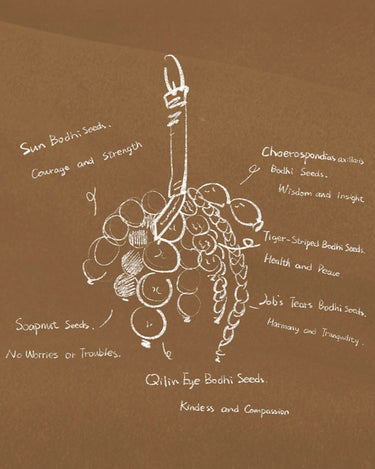 Sun Bodhi Seeds.
Courage and Strength
Choerospondias axillaris
Bodhi Seeds.
Wisdom and insight
Tiger-Striped Bodhi Seeds.
Health and Peace
Job's Tears Bodhi Seeds.
Harmony and Tranquility.
Soapnut Seeds.
No Worries or Troubles.
Qilin Eye Bodhi Seeds.
Kindess and Compassion